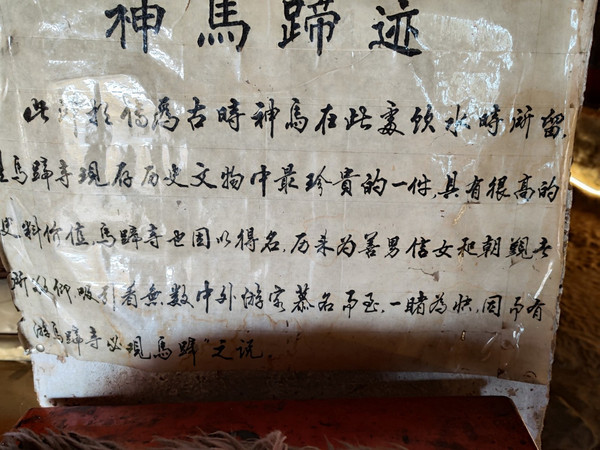 神馬蹄迹
此蹄於信為古時神馬在此處饮水時所留,
馬蹄寺現存历史文物中最珍貴的一件,具有很高的
史料价值,馬蹄寺也因以得名,历来为善男信女和朝觐者
所敬仰,吸引着無数中外游客慕名而至,一睹為快,因而有
游馬蹄寺必現馬蹄"之说。